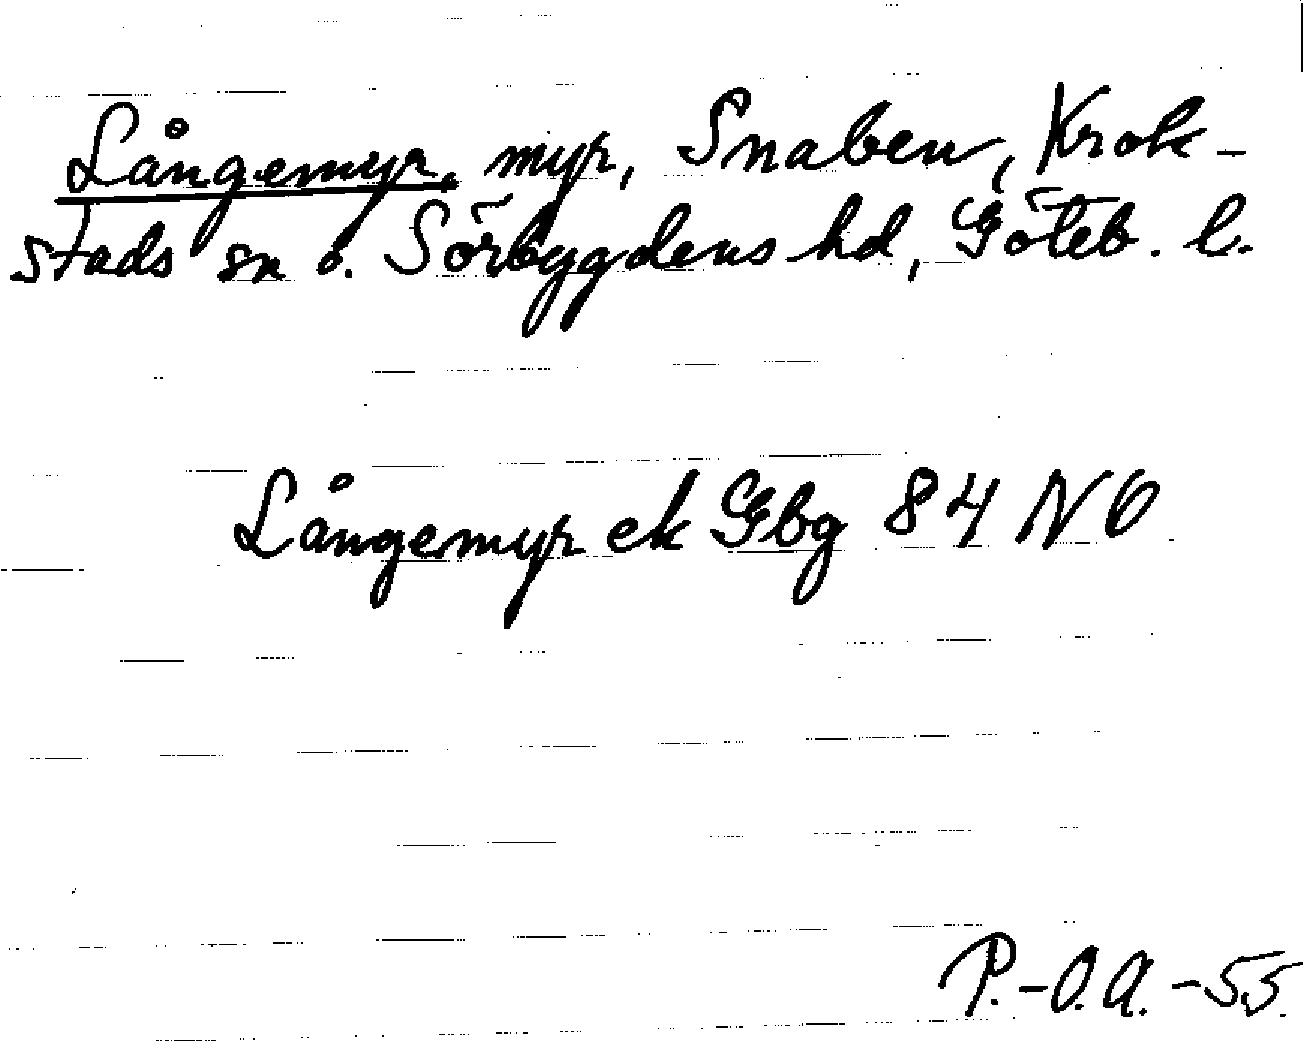 Långemyr, myr, Snaben, Krok-
stads sn o. Sörbygdens hd, Göteb. l.
Långemyr ek Gbg 84 NO
P.-O.A. -55.